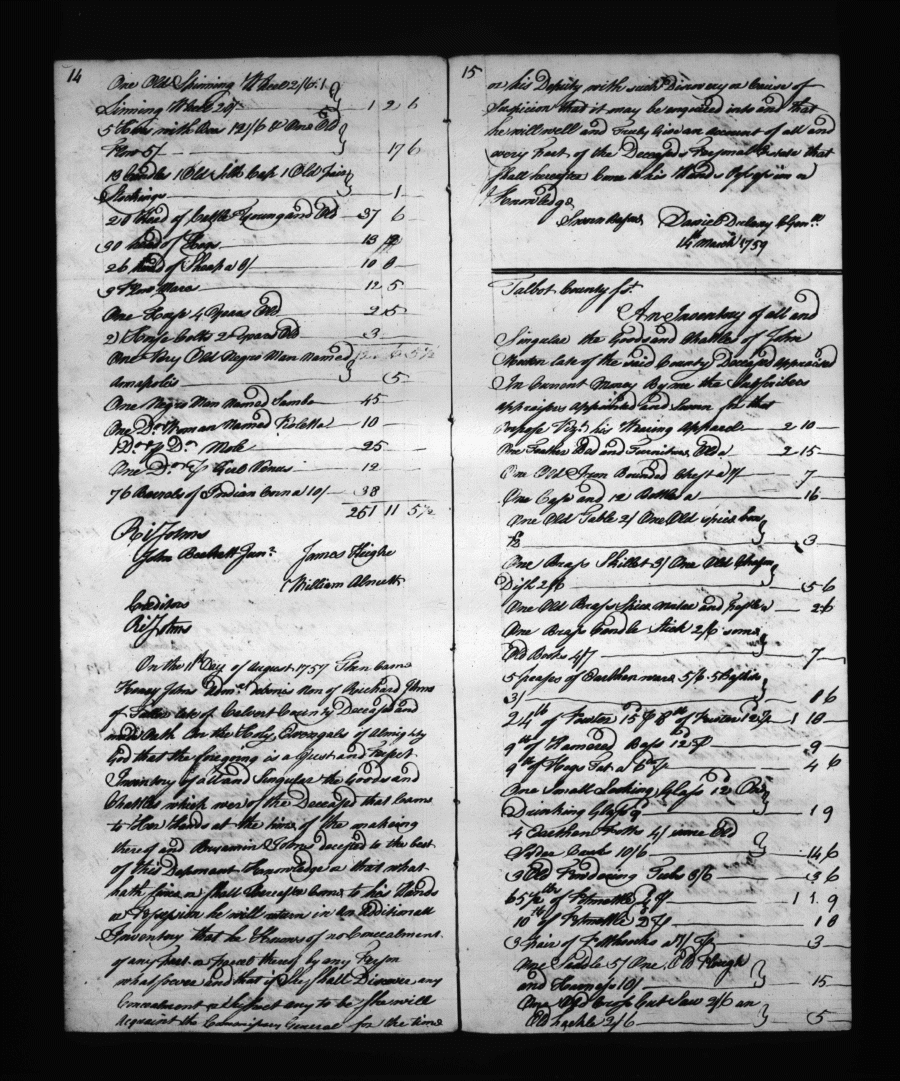 14
One Old Spinning Wheel 2/6. 1
Linning Wheel 20/ 1 2 6
5 Hoes with One 12/6 & One Old
Plow 5/ 17 6
13 Candles 1 Old Silk Cap 1 Old pair
Stockings 1
20 Head of Cattle Young and Old 37 6
30 head of Hogs 13
26 head of Sheep a 8/ 10 8
3 Plow Mares 12 5
One Horse 4 Years Old 2 5
2 Horse Colts 2 Years Old 3
One Very Old Negro Man Named
Annapolis 5
One Negro Man Named Sambo 45
One Do. Woman Named Violetta 10
1 Do. Moll 25
One Do. Girl Venus 12
76 Barrels of Indian Corn a 10/ 38
261 11 5½
Ri: Johns
John Beckett Junr. James Heighe
William Allnutt
Creditors
Ri: Johns
On the 11th Day of August 1757 Then Came
Kensey Johns Admr. of Richard Johns
of late of Calvert County Deceased and
made Oath On the Holy Evangels of Almighty
God that the foregoing is a Just and Perfect
Inventory of all and Singular the Goods and
Chattles which were of the Deceased that Came
to Hands at the time of the making
thereof and Benjamin Johns deceased to the best
of this Deponant Knowledge or that what
hath Since or shall hereafter Come to his Hands
or Possession he will return in an additionall
Inventory that he Knows of no Concealment
of any part or parcel thereof by any Person
whatsoever and that if She shall Discover any
Concealment or Suspect any to be She will
Acquaint the Commissary General for the time
15
or his Deputy with such Discovery or Cause of
Suspicion that it may be enquired into and that
he will well and Truly Give an account of all and
every Part of the Deceaseds Personal Estate that
Shall hereafter Come to his Hands Possession or
Knowledge
Sworn before Daniel Dulany Esqr.
14th March 1759
Talbot County Sst.
An Inventory of all and
Singular the Goods and Chattles of John
late of the said County Deceased Appraised
In Currant Money By we the Subscribers
Appraisers Appointed and Sworn for that
Purpose Vizt. his Wearing Apparel 2 10
One Feather Bed and Furniture Old a 2 15
One Old Iron Bounded Chest a 7/ 7
One Case and 12 Bottles a 16
One Old Table 2/ One Old spice box
3
One Brass Skillet 3/ One Old Chafing
Dish 2/6 5 6
One Old Brass Spice morter and pestle a 2 6
One Brass Candle Stick 2/6 some
Old Books 4/7 7
5 peases of Earthen ware 5/6. 5 Bottles
3/ 8 6
24 lb of Pewter 15d P 8 lb of Pewter 12d P 1 18
9 lb of Hamored Brass 12d P 9
9 lb of Hogs Fat a 6d lb P 4 6
One Small Looking Glass 12d One
Drinking Glass 9 1 9
4 Earthen Potts 4/ some Old
Syder Casks 10/6 14 6
3 Old Powdering Tubs 3/6 3 6
65½ lb of Potmettle 4d P 1 1 9
10 lb of Potmettle 2d P 1 8
3 pair of Pothooks a 1/ P 3
One Saddle 5/ One Old Plough
and Harness 10/ 15
One Old Cross Cut Saw 2/6 an
Old hackle 2/6 5